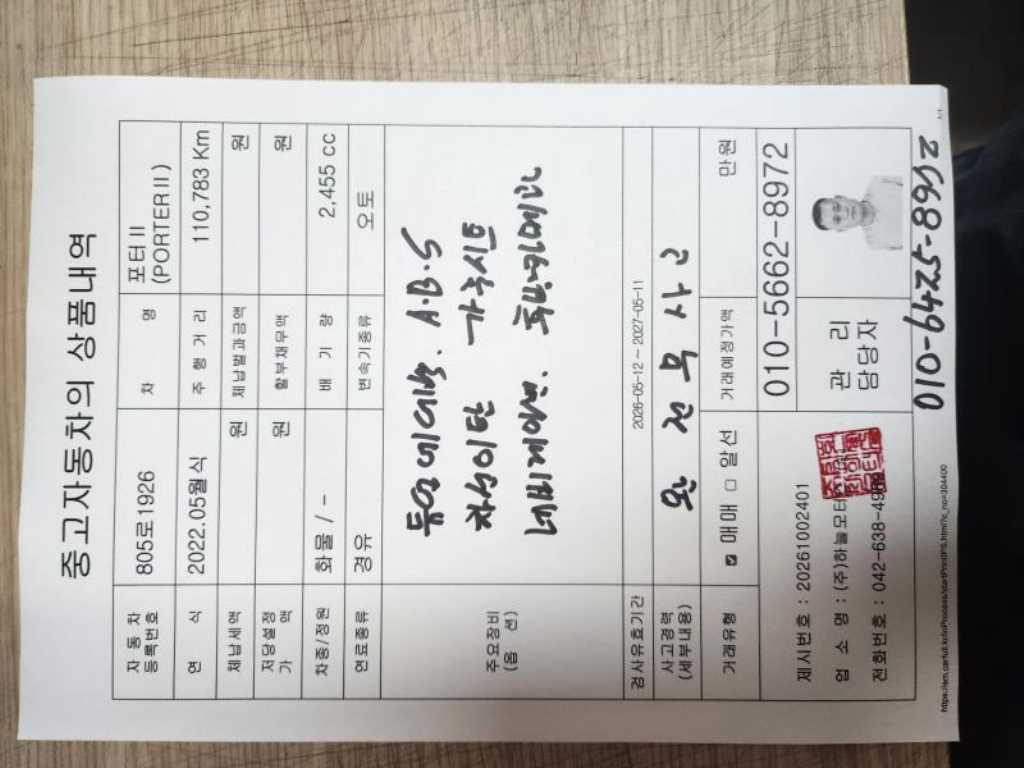 중고자동차의 상품내역
자동차 등록번호 805로1926 차 명 포터 II (PORTER II)
연 식 2022.05월식 주 행 거 리 110,783 Km
체납세액 원 체납벌과금액 원
저당설정 가 액 원 할부채무액 원
차종/정원 화물 / - 배 기 량 2,455 cc
연료종류 경유 변속기종류 오토
주요장비 (옵 션)
A.B.S
차선이탈 가죽시트
검사유효기간 2026-05-12 ~ 2027-05-11
사고경력 (세부내용) 완 전 무 사고
거래유형 ☑ 매매 □ 알선 거래예정가액 만원
제시번호 : 20261002401
업 소 명 : (주)하늘모터
전화번호 : 042-638-49
010-5662-8972
관 리 담당자
010-6425-8952
1/1